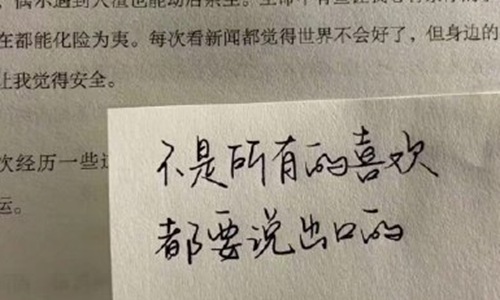 在都能化险为夷。每次看新闻都觉得世界不会好了，但身边的
让我觉得安全。
次经历一些
运。
不是所有的喜欢
都要说出口的